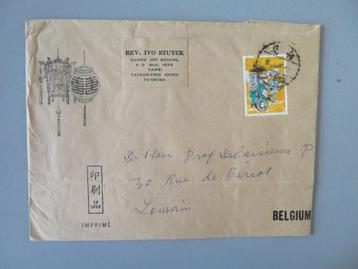 REV. IVO STUYCK
KUANG JEN SCHOOL
P.O BOX. 1536
TAIPEI
TAIWAN-FREE CHINA
FORMOSA
De Heer Prof
30 Rue de Beriot
Louvain
印刷
IMPRIMÉ
BELGIUM